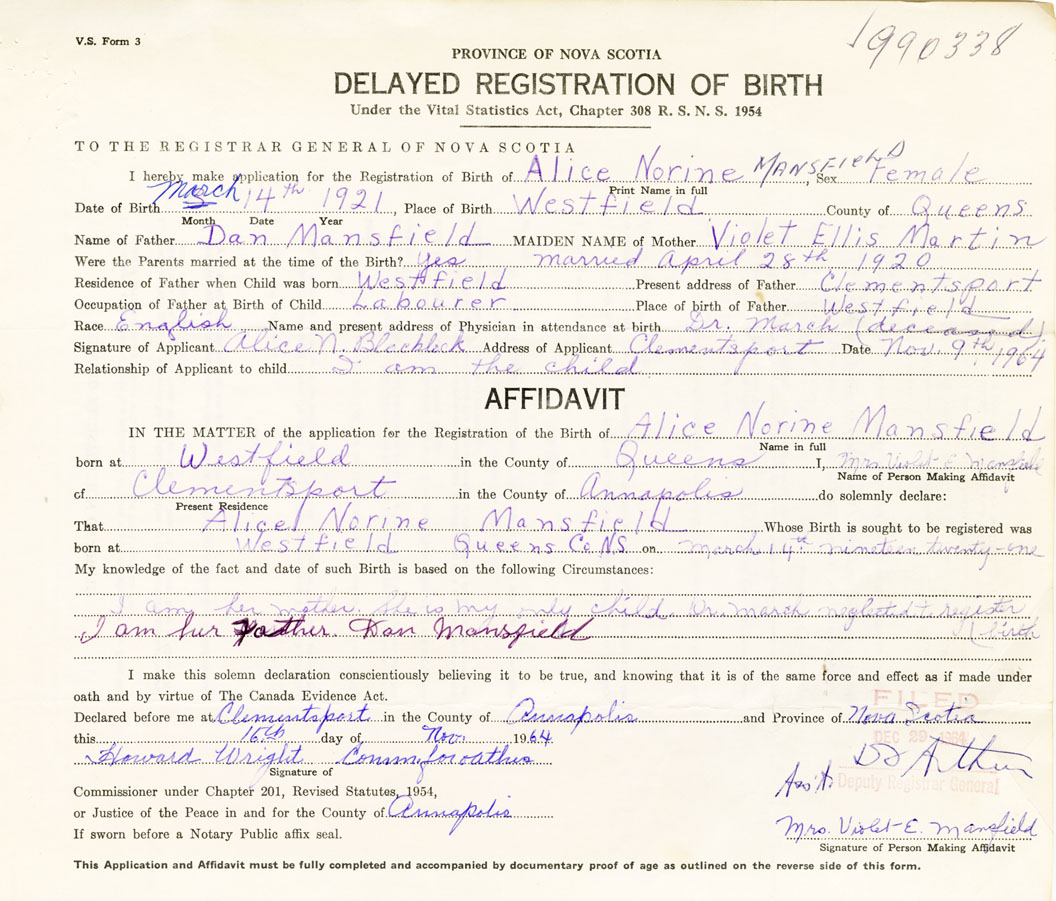 V.S. Form 3
1990338
PROVINCE OF NOVA SCOTIA
DELAYED REGISTRATION OF BIRTH
Under the Vital Statistics Act, Chapter 308 R. S. N. S. 1954
TO THE REGISTRAR GENERAL OF NOVA SCOTIA
I hereby make application for the Registration of Birth of Alice Norine MANSFIELD, Sex Female
Print Name in full
Date of Birth March 14th 1921, Place of Birth Westfield County of Queens
Month Date Year
Name of Father Dan Mansfield MAIDEN NAME of Mother Violet Ellis Martin
Were the Parents married at the time of the Birth? Yes married April 28th 1920
Residence of Father when Child was born Westfield Present address of Father Clementsport
Occupation of Father at Birth of Child Labourer Place of birth of Father Westfield
Race English Name and present address of Physician in attendance at birth Dr. March (deceased)
Signature of Applicant Alice N. Blacklock Address of Applicant Clementsport Date Nov. 9th, 1964
Relationship of Applicant to child I am the child
AFFIDAVIT
IN THE MATTER of the application for the Registration of the Birth of Alice Norine Mansfield
Name in full
born at Westfield in the County of Queens I, Mrs Violet E. Mansfield
Name of Person Making Affidavit
of Clementsport in the County of Annapolis do solemnly declare:
Present Residence
That Alice Norine Mansfield Whose Birth is sought to be registered was
born at Westfield Queens Co. N.S. on march 14th nineteen twenty-one
My knowledge of the fact and date of such Birth is based on the following Circumstances:
I am her mother. She is my only child Dr. March neglected register
(birth
I am her father. Dan Mansfield
I make this solemn declaration conscientiously believing it to be true, and knowing that it is of the same force and effect as if made under
oath and by virtue of The Canada Evidence Act.
FILED
Declared before me at Clementsport in the County of Annapolis and Province of Nova Scotia
this 16th day of Nov. 1964
DEC 29 1964
Howard Wright
Signature of
D Arthur
Ass't.
Deputy Registrar General
Commissioner under Chapter 201, Revised Statutes, 1954,
or Justice of the Peace in and for the County of Annapolis
If sworn before a Notary Public affix seal.
Mrs. Violet E. Mansfield
Signature of Person Making Affidavit
This Application and Affidavit must be fully completed and accompanied by documentary proof of age as outlined on the reverse side of this form.